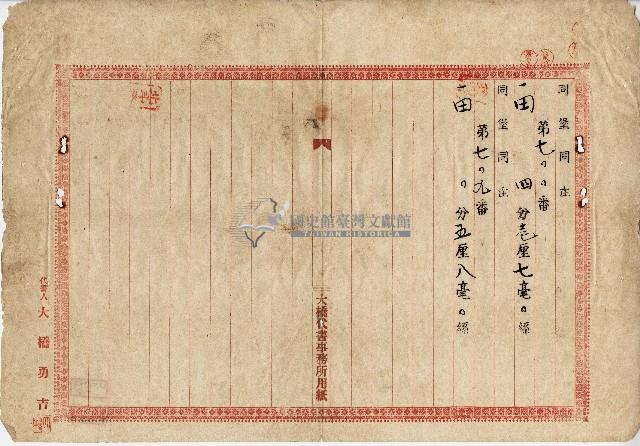 同堡同庄
第七〇〇番
一田 四分壱厘七毫〇絲
同堡同庄
第七〇九番
一田 〇分五厘八毫〇絲
大橋代書事務所用紙
代書人 大橋勇吉
國史館臺灣文獻館
TAIWAN HISTORICA